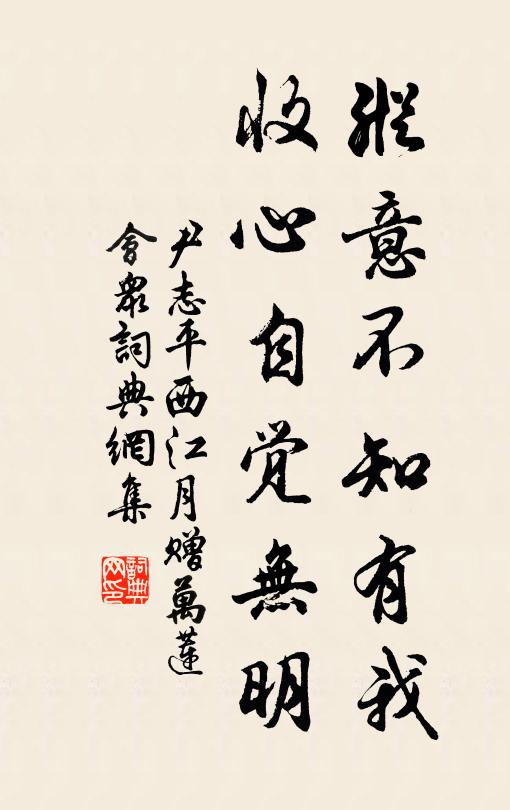 縱意不知有我
收心自觉無明
尹志平西江月赠萬蓮
會眾詞典網集
詞典
网印